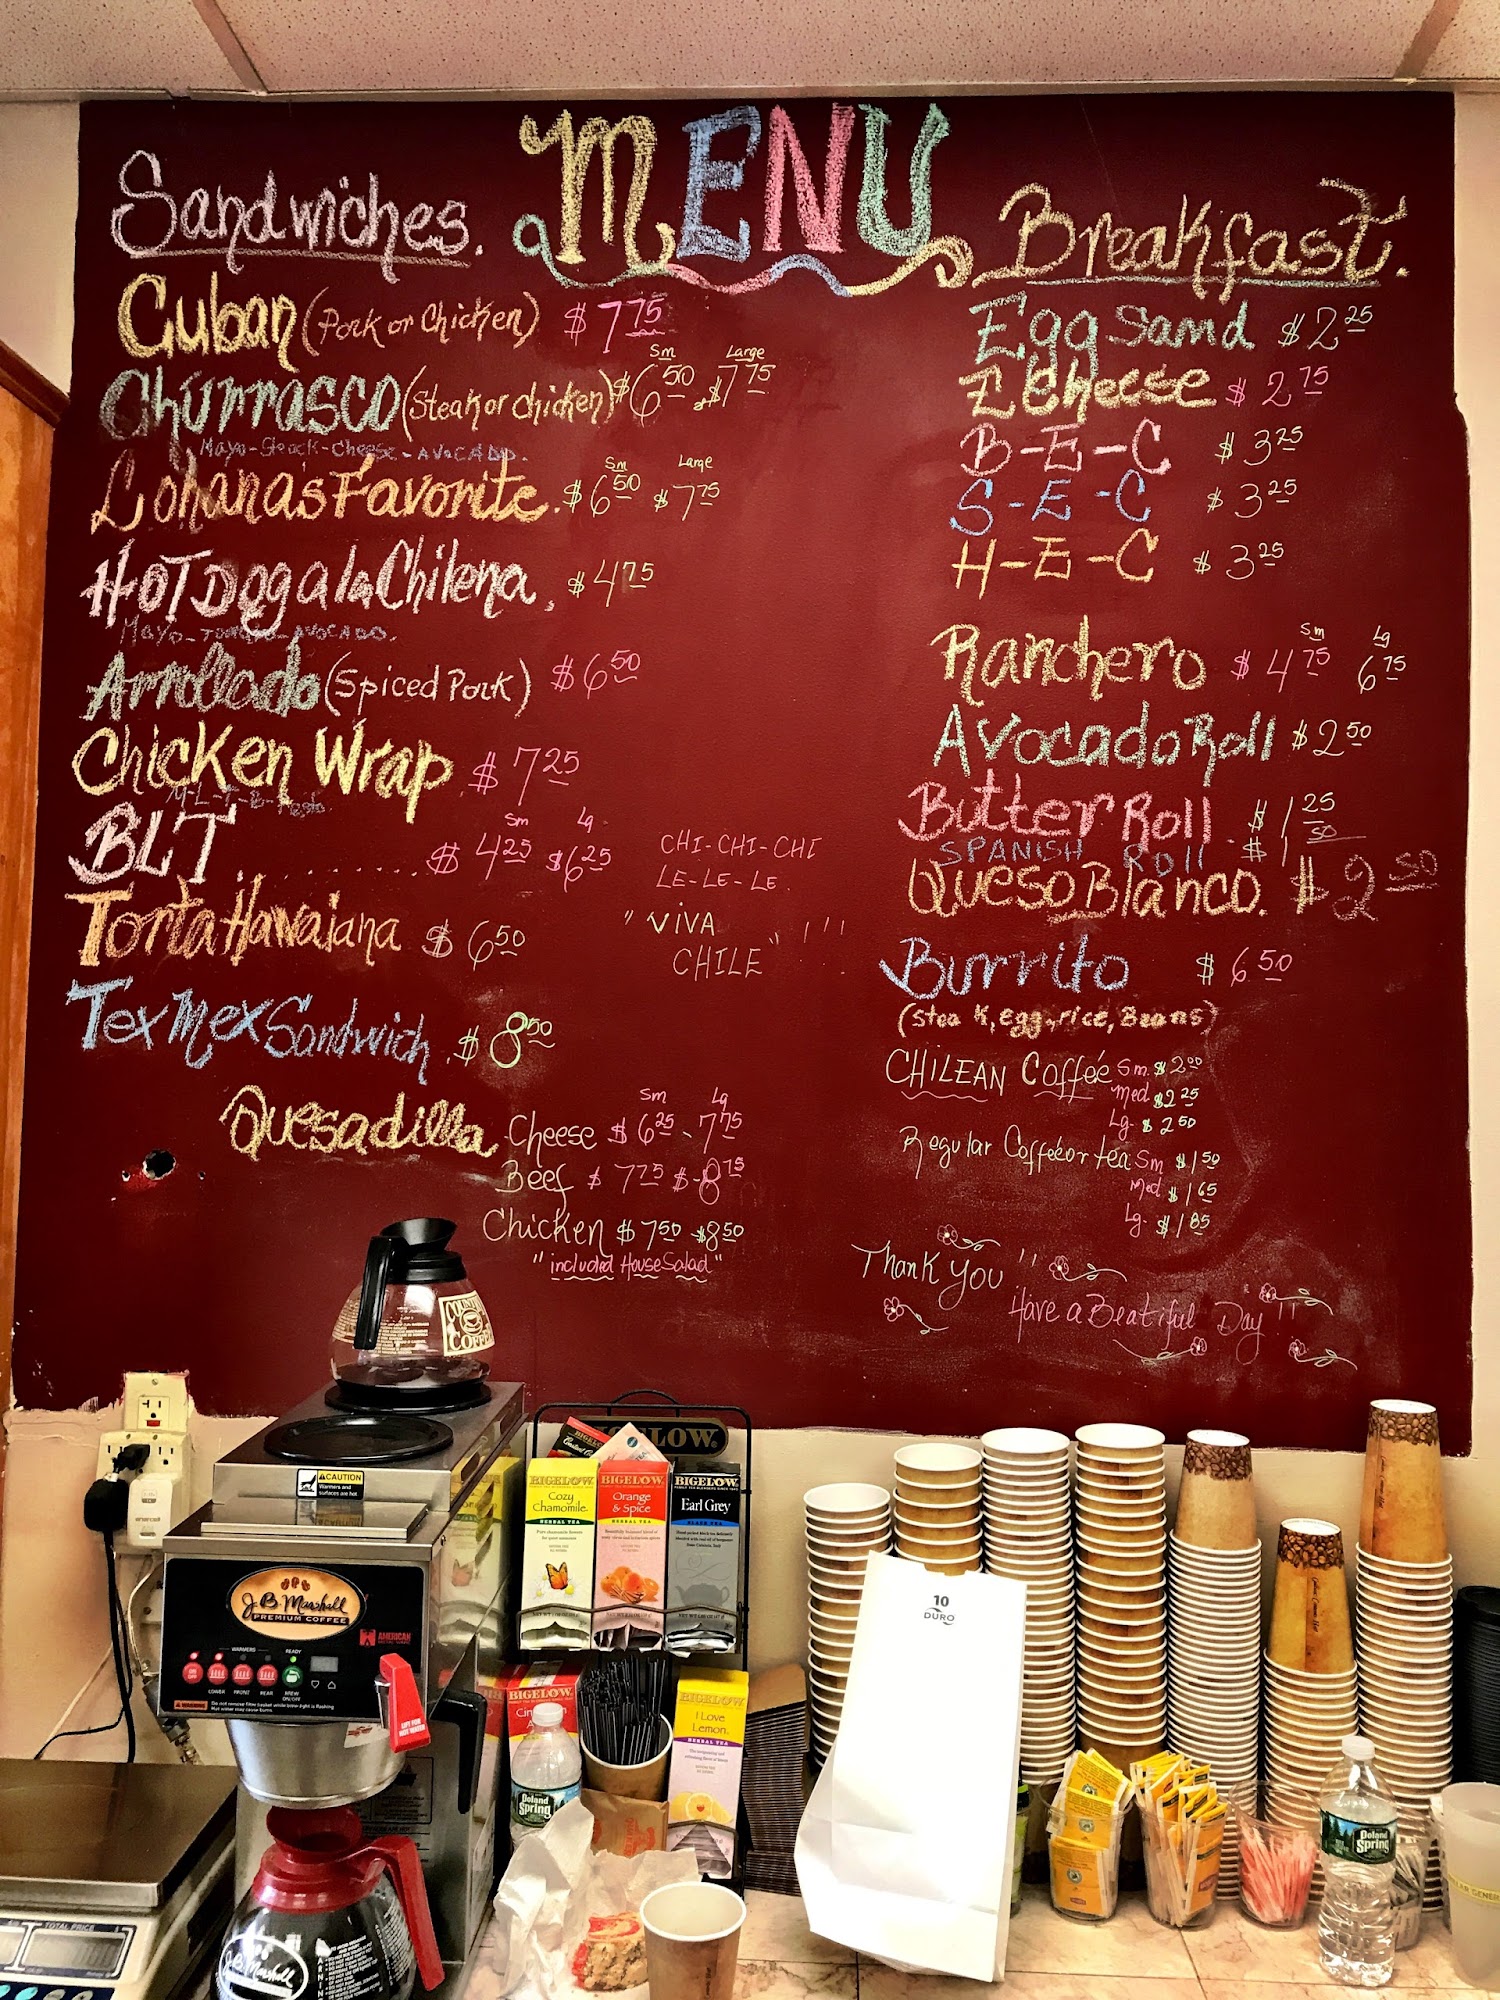 MENU
Sandwiches.
Cuban (Pork or Chicken) $7.75
Sm Large
Churrasco (Steak or chicken) $6.50 $7.75
Mayo-Steack-Cheese-AVOCADO.
Sm Large
Lohana's Favorite. $6.50 $7.75
HOT Dog a la Chilena. $4.75
Mayo-Tomato-AVOCADO.
Arrollado (Spiced Pork) $6.50
Chicken Wrap. $7.25
Sm Lg
BLT ........ $4.25 $6.25
Torta Hawaiana $6.50
Tex Mex Sandwich. $8.50
Sm Lg
Quesadilla Cheese $6.25 - 7.75
Beef $7.75 $8.75
Chicken $7.50 $8.50
"included House Salad"
CHI-CHI-CHI
LE-LE-LE.
"VIVA
CHILE" !!!
Breakfast.
Egg Sand $2.25
E Cheese $2.75
B-E-C $3.25
S-E-C $3.25
H-E-C $3.25
Sm Lg
Ranchero $4.75 6.75
Avocado Roll $2.50
Butter Roll $1.25
SPANISH Roll $1.50
Queso Blanco. $2.50
Burrito $6.50
(steak, egg, rice, Beans)
CHILEAN Coffée Sm. $2.00
Med $2.25
Lg. $2.50
Regular Coffée or tea Sm $1.50
Med $1.65
Lg. $1.85
Thank you !!
Have a Beatiful Day!!
COUNTRY
COFFEE
CAUTION
Warmers and
surfaces are hot
J.B. Marshall
PREMIUM COFFEE
AMERICAN
WARMERS
READY
ON/OFF
LOWER FRONT REAR BREW ON/OFF
WARNING
TOTAL PRICE
J.B. Marshall
BIGELOW
BIGELOW
Cozy
Chamomile
HERBAL TEA
BIGELOW
Orange
& Spice
HERBAL TEA
BIGELOW
Earl Grey
BLACK TEA
BIGELOW
BIGELOW
I Love
Lemon
HERBAL TEA
Poland
Spring
10
DURO
Poland
Spring